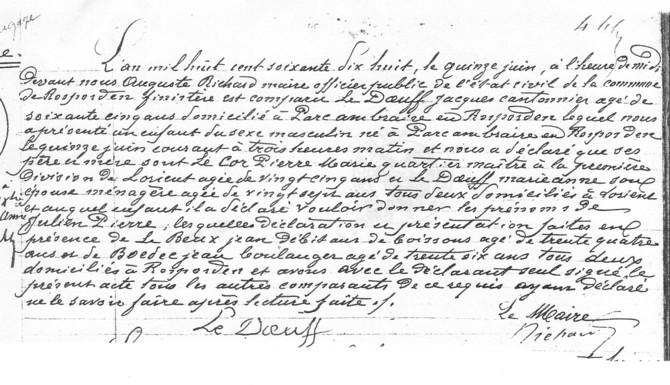 L'an mil huit cent soixante dix huit, le quinze juin, à l'heure de midi
devant nous Auguste Richard maire officier public de l'état civil de la commune
de Rosporden finistère est comparu Le Dœuff Jacques cantonnier agé de
soixante cinq ans domicilié à Parc ambraire en Rosporden lequel nous
a présenté un enfant du sexe masculin né à Parc ambraire en Rosporden
le quinze juin courant à trois heures matin et nous a déclaré que ses
père et mère sont Le Cor Pierre Marie quartier maître à la première
Division de Lorient agée de vingt cinq ans et Le Dœuff marie anne son
épouse ménagère agée de vingt sept ans tous deux domiciliés à Lorient
et auquel enfant il a déclaré vouloir donner les prénoms de
Julien Pierre; lesquelles déclaration et présentation faites en
présence de Le Beux jean débitant de boissons agé de trente quatre
ans et de Boëdec jean boulanger agé de trente six ans tous deux
domiciliés à Rosporden et avons avec le déclarant seul signé le
présent acte tous les autres comparants de ce requis ayant déclaré
ne le savoir faire après lecture faite
Le Dœuff
Le Maire
Richard